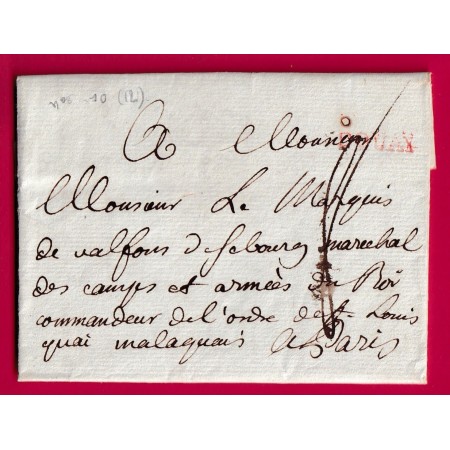 A Monsieur
DOUAY
Monsieur Le Marquis
de valfons d Sebourg marechal
des camps et armées du Roÿ
commandeur de l'ordre de St Louis
quai malaquais a Paris